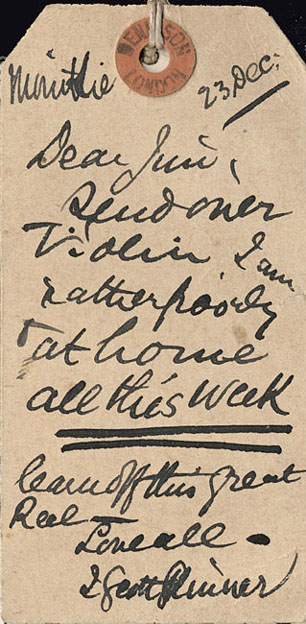 DENNISON
LONDON
Monikie
23 Dec:
Dear Jim,
Send over
Violin, I am
rather poorly
+ at home
all this week
learn off this great
Reel —
Love all —
J Scott Skinner